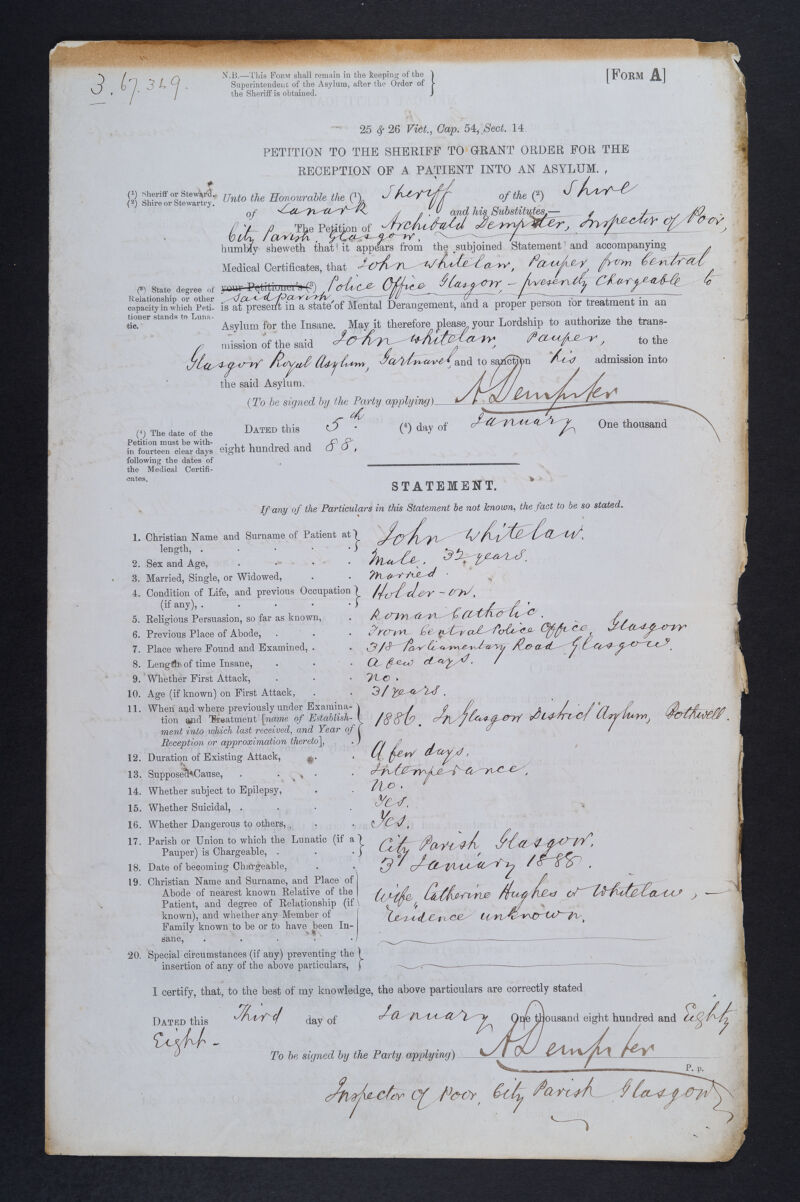 3.67.349.
N.B.—This Form shall remain in the keeping of the
Superintendent of the Asylum, after the Order of
the Sheriff is obtained.
[Form A]
25 & 26 Vict., Cap. 54, Sect. 14
PETITION TO THE SHERIFF TO GRANT ORDER FOR THE
RECEPTION OF A PATIENT INTO AN ASYLUM.
(1) Sheriff or Steward.
(2) Shire or Stewartry.
Unto the Honourable the (1) Sheriff of the (2) Shire
of Lanark and his Substitutes,—
The Petition of Archibald Dempster, Inspector of Poor,
City Parish, Glasgow,
humbly sheweth that it appears from the subjoined Statement and accompanying
Medical Certificates, that John Whitelaw, Pauper, from Central
(3) State degree of
Relationship or other
capacity in which Peti-
tioner stands to Luna-
tic.
your Petitioner's (3) Police Office, Glasgow, – presently Chargeable to
said parish,
is at present in a state of Mental Derangement, and a proper person for treatment in an
Asylum for the Insane. May it therefore please your Lordship to authorize the trans-
mission of the said John Whitelaw, Pauper, to the
Glasgow Royal Asylum, Gartnavel, and to sanction his admission into
the said Asylum.
(To be signed by the Party applying) A Dempster
(4) The date of the
Petition must be with-
in fourteen clear days
following the dates of
the Medical Certifi-
cates.
Dated this 5th. (4) day of January One thousand
eight hundred and 88.
STATEMENT.
If any of the Particulars in this Statement be not known, the fact to be so stated.
1. Christian Name and Surname of Patient at
length, . John Whitelaw.
2. Sex and Age, Male. 32 years.
3. Married, Single, or Widowed, Married.
4. Condition of Life, and previous Occupation
(if any), . Holder-on.
5. Religious Persuasion, so far as known, Roman Catholic.
6. Previous Place of Abode, From Central Police Office, Glasgow
7. Place where Found and Examined, . 318 Parliamentary Road Glasgow.
8. Length of time Insane, A few days.
9. Whether First Attack, No.
10. Age (if known) on First Attack, 31 years.
11. When and where previously under Examina-
tion and Treatment [name of Establish-
ment into which last received, and Year of
Reception or approximation thereto], 1886. In Glasgow District Asylum, Bothwell.
12. Duration of Existing Attack, A few days.
13. Supposed Cause, Intemperance.
14. Whether subject to Epilepsy, No.
15. Whether Suicidal, . Yes.
16. Whether Dangerous to others, Yes.
17. Parish or Union to which the Lunatic (if a
Pauper) is Chargeable, City Parish Glasgow.
18. Date of becoming Chargeable, 3d January 1888.
19. Christian Name and Surname, and Place of
Abode of nearest known Relative of the
Patient, and degree of Relationship (if
known), and whether any Member of
Family known to be or to have been In-
sane, Wife, Catherine Hughes or Whitelaw, –
residence unknown.
20. Special circumstances (if any) preventing the
insertion of any of the above particulars,
I certify, that, to the best of my knowledge, the above particulars are correctly stated
Dated this Third day of January One thousand eight hundred and Eighty
Eight –
To be signed by the Party applying) A Dempster
P. p.
Inspector of Poor, City Parish Glasgow